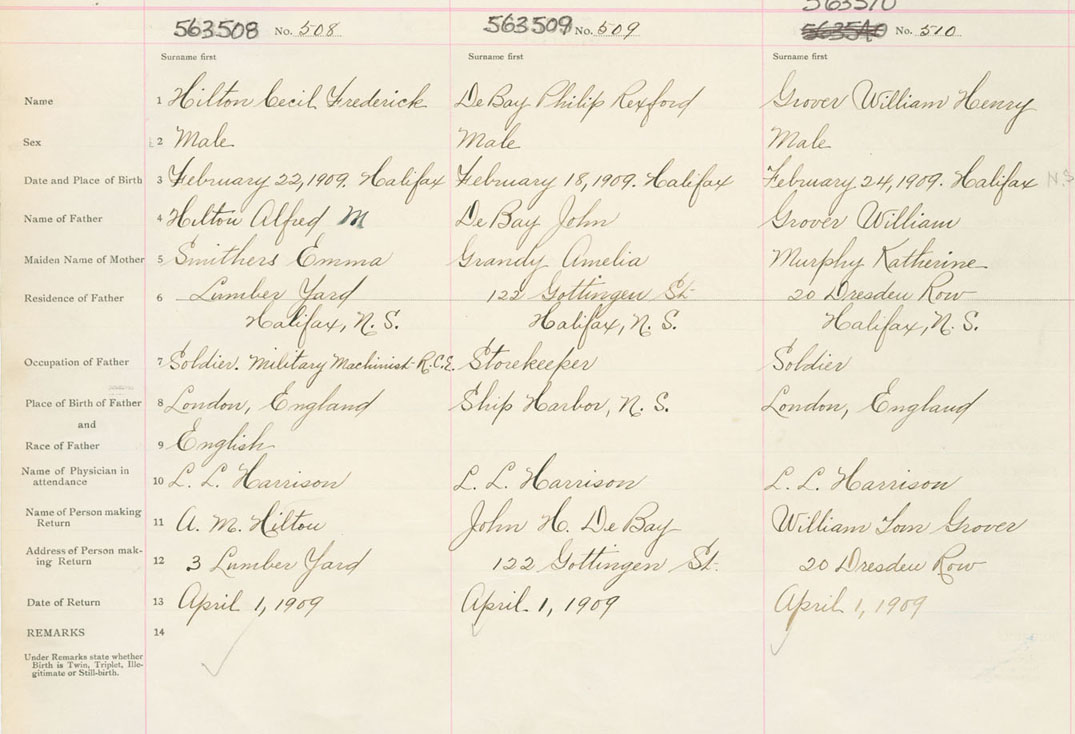 563510
563508 No. 508 563509 No. 509 563510 No. 510
Surname first Surname first Surname first
Name 1 Hilton Cecil Frederick DeBay Philip Rexford Grover William Henry
Sex 2 Male Male Male
Date and Place of Birth 3 February 22, 1909. Halifax February 18, 1909. Halifax February 24, 1909. Halifax N.S
Name of Father 4 Hilton Alfred M DeBay John Grover William
Maiden Name of Mother 5 Smithers Emma Grandy Amelia Murphy Katherine
Residence of Father 6 Lumber Yard 122 Gottingen St. 20 Dresden Row
Halifax, N. S. Halifax, N. S. Halifax, N. S.
Occupation of Father 7 Soldier. Military Machinist R.C.E. Storekeeper Soldier
Place of Birth of Father 8 London, England Ship Harbor, N. S. London, England
and
Race of Father 9 English
Name of Physician in
attendance 10 L. L. Harrison L. L. Harrison L. L. Harrison
Name of Person making
Return 11 A. M. Hilton John H. DeBay William Tom Grover
Address of Person mak-
ing Return 12 3 Lumber Yard 122 Gottingen St. 20 Dresden Row
Date of Return 13 April 1, 1909 April 1, 1909 April 1, 1909
REMARKS 14
Under Remarks state whether
Birth is Twin, Triplet, Ille-
gitimate or Still-birth.